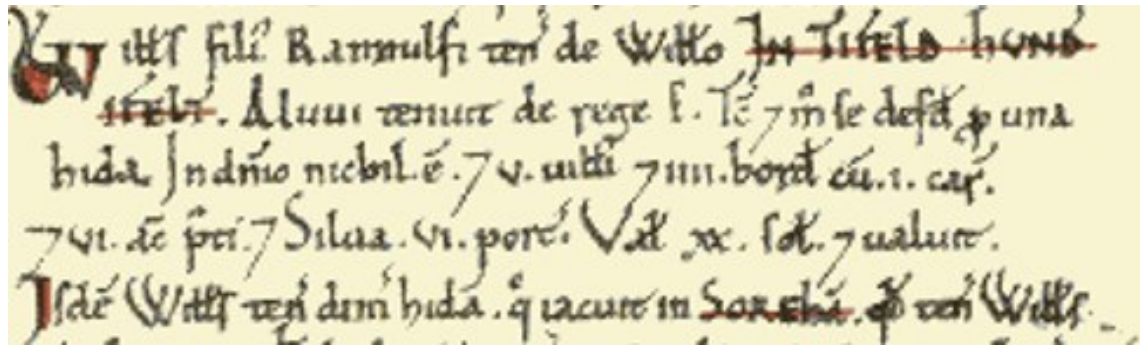 Willſ filí Rannulfi teń de Willo IN TIFELD HVND
IFELT. Aluui tenuit de rege E. Tc̄ ⁊ m̊ ſe defd̄ ꝓ una
hida. In dn̄io nichil. ē. ⁊ v. uilli ⁊ iiii. bord cū. i. caŕ.
⁊ vi. ac̄ p̊ti. ⁊ Silua. vi. porc̄. Val xx. ſol. ⁊ ualuit.
Iſdē Willſ teń dim̄ hida. q̊ iacuit in Sorehā. qd̄ teń Willſ.